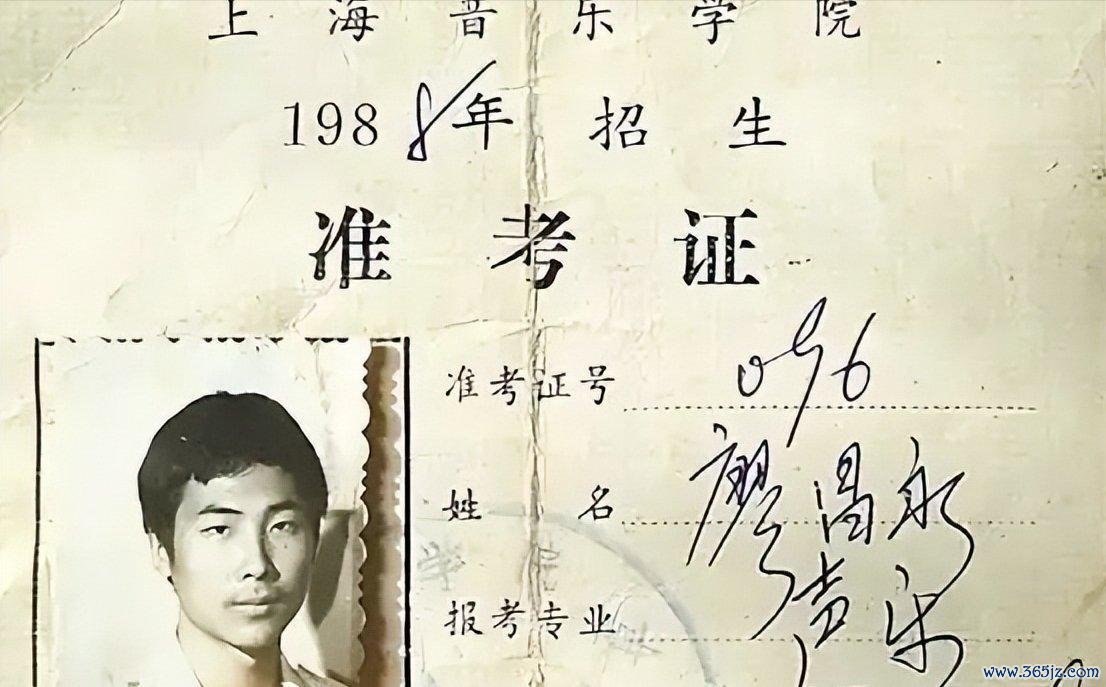 上海音乐学院
1988年招生
准考证
准考证号 096
姓名 廖昌永
报考专业 声乐
www.365jz.com